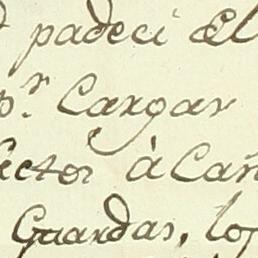 padeci El
p.r Cargar
ector à Cañ
Guardas, lo